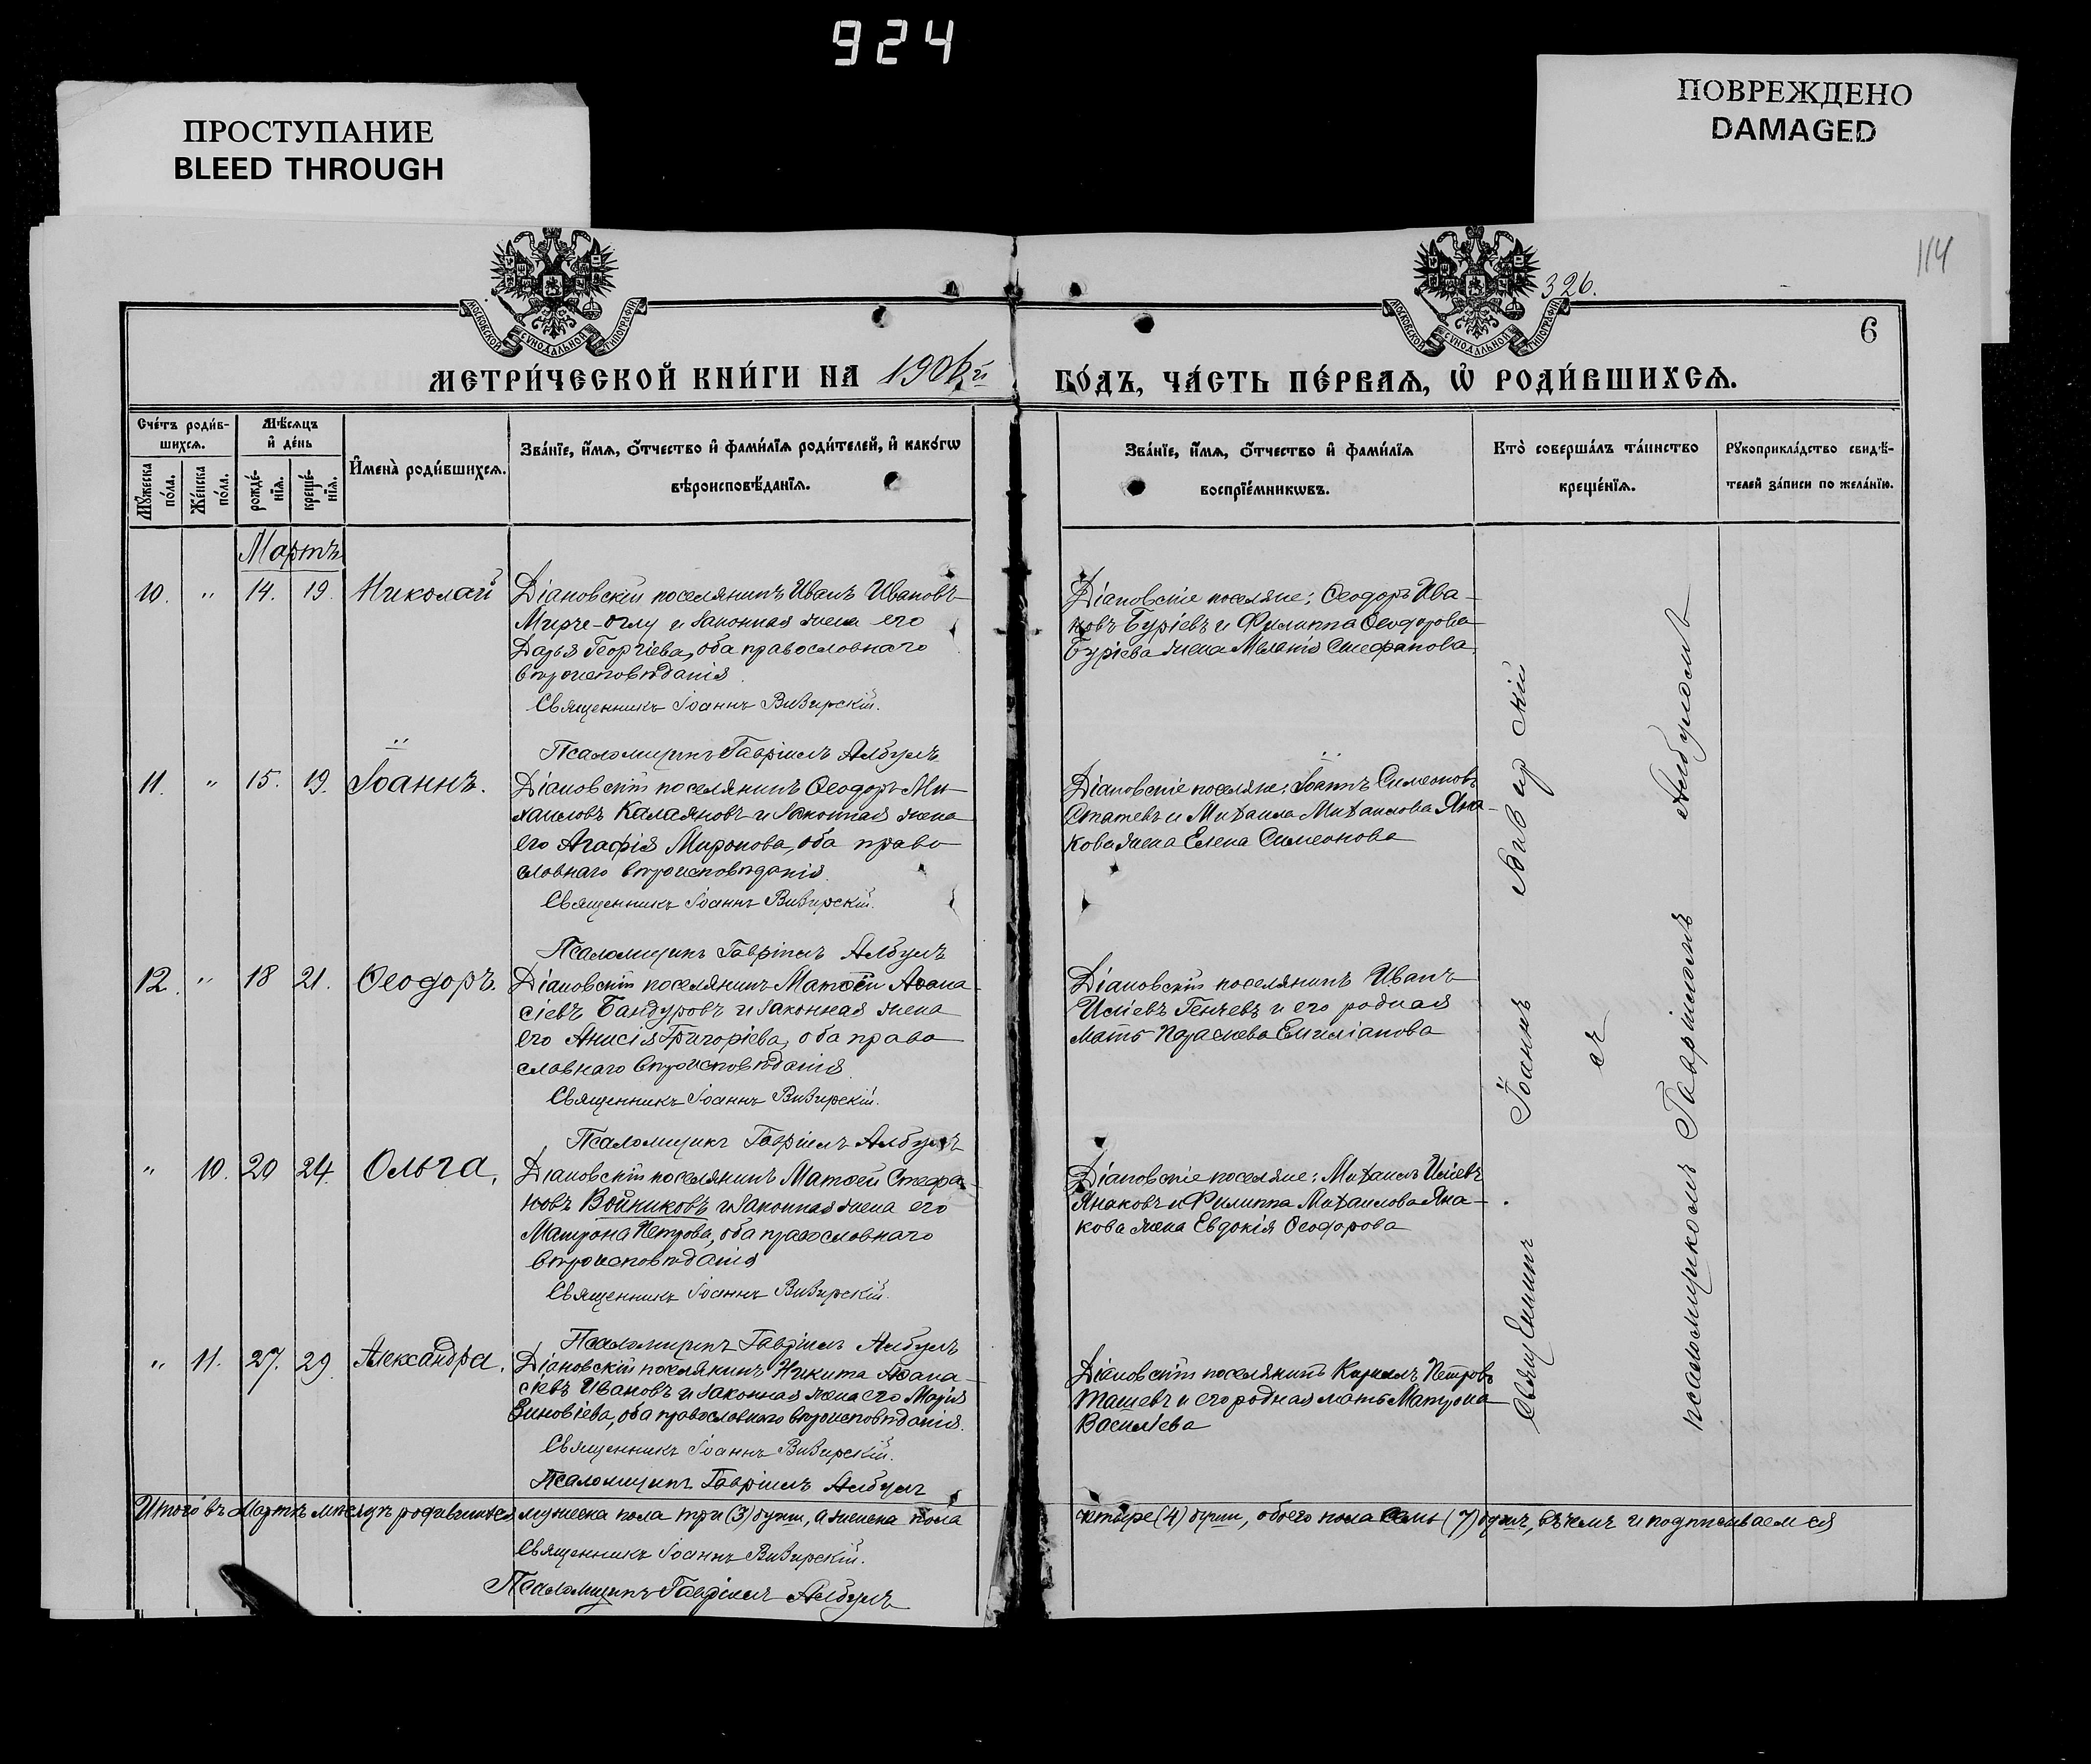 924
ПРОСТУПАНИЕ
BLEED THROUGH
ПОВРЕЖДЕНО
DAMAGED
114
326.
МОСКОВСКОЙ СѴНОДАЛЬНОЙ ТИПОГРАФІИ
МОСКОВСКОЙ СѴНОДАЛЬНОЙ ТИПОГРАФІИ
6
МЕТРИ́ЧЕСКОЙ КНИ́ГИ НА 1906й
ГО́ДЪ, ЧА́СТЬ ПЕ́РВАѦ, Ѿ РОДИ́ВШИХСѦ.
Сче́тъ роди́в-
шихсѧ.
Мꙋ́жеска по́ла.
Же́нска по́ла.
Мѣ́сѧцъ
и҆ де́нь
рожде́-
нїѧ.
креще́-
нїѧ.
И҆мена̀ роди́вшихсѧ.
Зва́нїе, и҆́мѧ, ѻ҆́тчество и҆ фами́лїѧ роди́телей, и҆ како́гѡ
вѣроисповѣ́данїѧ.
Зва́нїе, и҆́мѧ, ѻ҆́тчество и҆ фами́лїѧ
воспрїе́мникѡвъ.
Кто̀ соверша́лъ та́инство
креще́нїѧ.
Рꙋкоприкла́дство свидѣ́-
телей за́писи по жела́нїю.
Мартъ
10. " 14. 19. Николай
Діановскій поселянинъ Иванъ Ивановъ
Мирче-оглу и законная жена его
Дарья Георгіева, оба православнаго
вѣроисповѣданія.
Священникъ Іоаннъ Визирскій.
Псаломщикъ Гавріилъ Албулъ
Діановскіе поселяне: Ѳеодоръ Ива-
новъ Буріевъ и Филиппа Ѳеодорова
Буріева жена Меланія Стефанова
11. " 15. 19. Іоаннъ.
Діановскій поселянинъ Ѳеодоръ Ми-
хаиловъ Калаяновъ и законная жена
его Агафія Миронова, оба право
славнаго вѣроисповѣданія.
Священникъ Іоаннъ Визирскій.
Псаломщикъ Гавріилъ Албулъ
Діановскіе поселяне: Іоаннъ Симеоновъ
Статевъ и Михаила Михаилова Яна-
кова жена Елена Симеонова
12. " 18 21. Ѳеодоръ.
Діановскій поселянинъ Матѳей Аѳана-
сіевъ Бандуровъ и законная жена
его Анисія Григоріева, оба право
славнаго вѣроисповѣданія.
Священникъ Іоаннъ Визирскій.
Псаломщикъ Гавріилъ Албулъ
Діановскій поселянинъ Иванъ
Иліевъ Генчевъ и его родная
мать Параскева Емиліанова
" 10. 20 24. Ольга.
Діановскій поселянинъ Матѳей Стефа-
новъ Войниковъ и законная жена его
Матрона Петрова, оба православнаго
вѣроисповѣданія
Священникъ Іоаннъ Визирскій.
Псаломщикъ Гавріилъ Албулъ
Діановскіе поселяне: Михаилъ Иліевъ
Янаковъ и Филиппа Михаилова Яна-
кова жена Евдокія Ѳеодорова
" 11. 27. 29. Александра.
Діановскій поселянинъ Никита Аѳана-
сіевъ Ивановъ и законная жена его Марія
Зиновіева, оба православнаго вѣроисповѣданія.
Священникъ Іоаннъ Визирскій.
Псаломщикъ Гавріилъ Албулъ
Діановскій поселянинъ Кириллъ Петровъ
Ташевъ и его родная мать Матрона
Василіева
Священникъ Іоаннъ Визирскій
съ
псаломщикомъ Гавріиломъ Албуломъ
Итого въ Мартѣ мѣсяцѣ родившихся мужеска пола три (3) души, а женска пола
четыре (4) души, обоего пола семь (7) душъ, въ чемъ и подписываемся
Священникъ Іоаннъ Визирскій.
Псаломщикъ Гавріилъ Албулъ